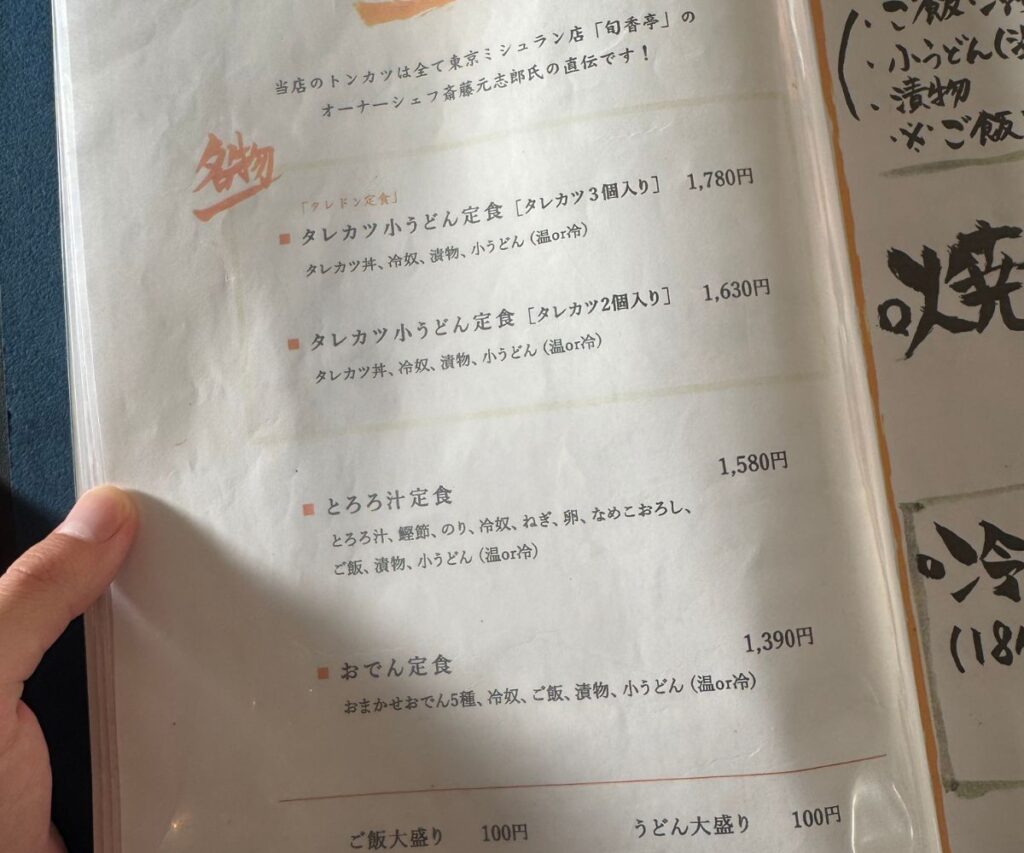 当店のトンカツは全て東京ミシュラン店「旬香亭」の
オーナーシェフ斎藤元志郎氏の直伝です！
名物
「タレドン定食」
■ タレカツ小うどん定食［タレカツ3個入り］ 1,780円
タレカツ丼、冷奴、漬物、小うどん（温or冷）
■ タレカツ小うどん定食［タレカツ2個入り］ 1,630円
タレカツ丼、冷奴、漬物、小うどん（温or冷）
■ とろろ汁定食 1,580円
とろろ汁、鰹節、のり、冷奴、ねぎ、卵、なめこおろし、
ご飯、漬物、小うどん（温or冷）
■ おでん定食 1,390円
おまかせおでん5種、冷奴、ご飯、漬物、小うどん（温or冷）
ご飯大盛り 100円 うどん大盛り 100円
・ご飯
・小うどん
・漬物
※ご飯
焼
冷